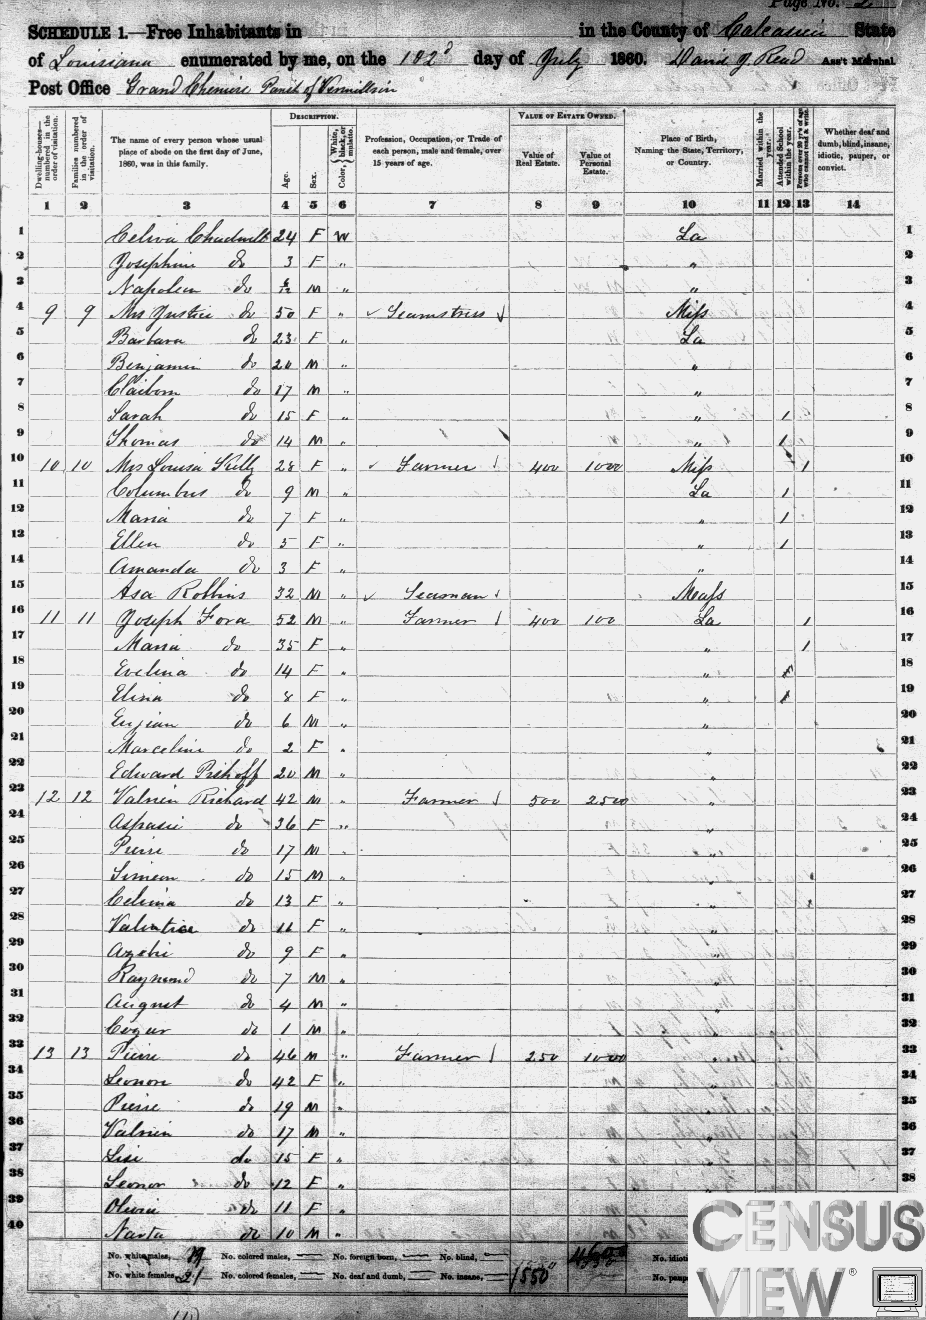 Page No. 2
SCHEDULE 1.—Free Inhabitants in in the County of Calcasieu State
of Louisiana enumerated by me, on the 102d day of July 1860. David J. Read Ass't Marshal
Post Office Grand Cheniere Parish of Vermillion
DESCRIPTION. VALUE OF ESTATE OWNED.
Dwelling-houses—numbered in the order of visitation. Families numbered in the order of visitation. The name of every person whose usual place of abode on the first day of June, 1860, was in this family. Age. Sex. Color, {White, black, or mulatto. Profession, Occupation, or Trade of each person, male and female, over 15 years of age. Value of Real Estate. Value of Personal Estate. Place of Birth, Naming the State, Territory, or Country. Married within the year. Attended School within the year. Persons over 20 y'rs of age who cannot read & write. Whether deaf and dumb, blind, insane, idiotic, pauper, or convict.
1 2 3 4 5 6 7 8 9 10 11 12 13 14
1 Celiva 24 F W La 1
2 Josephine do 3 F " " 2
3 Napoleon do /12 M " " 3
4 9 9 Mrs Justice do 50 F " Seamstress Miss 4
5 Barbara do 23 F " La 5
6 Benjamin do 20 M " " 6
7 Claiborn do 17 M " 7
8 Sarah do 15 F " " 1 8
9 Thomas do 14 M " " 1 9
10 10 10 Mrs Louisa Kelly 28 F " Farmer 400 1000 Miss 1 10
11 Columbus do 9 M " La 1 11
12 Maria do 7 F " " 1 12
13 Ellen do 5 F " " 1 13
14 Amanda do 3 F " " 14
15 Asa Robbins 32 M " Seaman Mass 15
16 11 11 Joseph Fora 52 M " Farmer 400 100 La 1 16
17 Maria do 35 F " " 1 17
18 Evelina do 14 F " " 1 18
19 Elina do 8 F " " 1 19
20 Eujean do 6 M " " 20
21 Marcelin do 2 F " " 21
22 Edward Pishoff 20 M " " 22
23 12 12 Valsien Richard 42 M " Farmer 500 2500 " 23
24 Aspasie do 36 F " " 24
25 Pierre do 17 M " " 25
26 Simeon do 15 M " " 26
27 Celima do 13 F " " 27
28 Valentine do 11 F " " 28
29 Azobie do 9 F " " 29
30 Raymond do 7 M " " 30
31 August do 4 M " " 31
32 do 1 M " " 32
33 13 13 Pierre do 46 M " Farmer 250 1000 " 33
34 Leonore do 42 F " " 34
35 Pierre do 19 M " " 35
36 Valsien do 17 M " " 36
37 Lise do 15 F " " 37
38 Leonor do 12 F " " 38
39 Olivia do 11 F "
40 Narta do 10 M "
No. white males, 19 No. colored males, — No. foreign born, — No. blind, — No. idiotic
No. white females, 21 No. colored females, — No. deaf and dumb, — No. insane, — 1550 No. paup
CENSUS
VIEW®